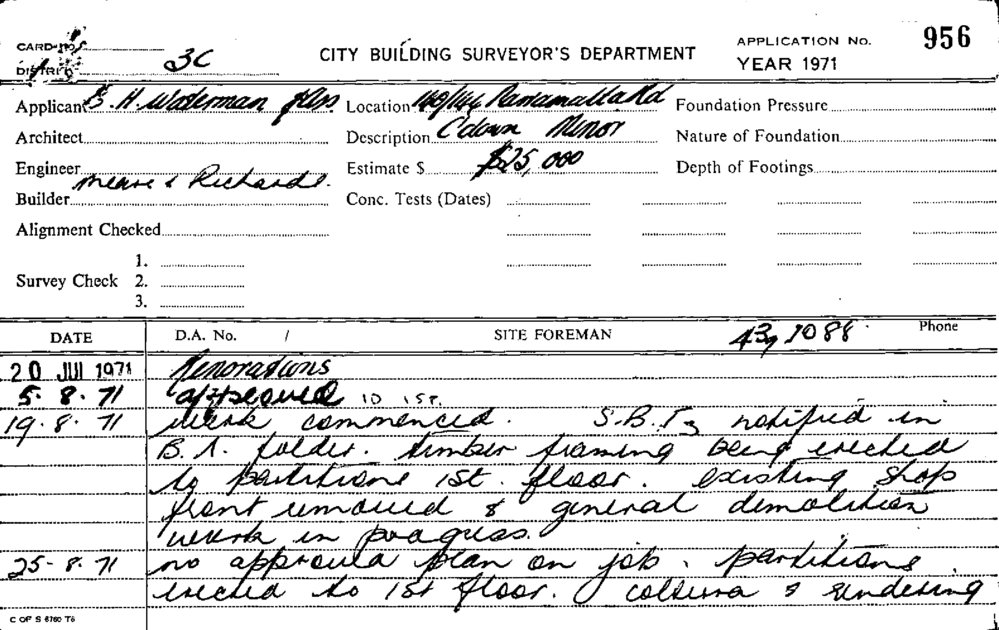 CARD No.
DISTRICT 3C
CITY BUILDING SURVEYOR'S DEPARTMENT
APPLICATION No. 956
YEAR 1971
Applicant H. Waterman
Location 140/144 Parramatta Rd
Foundation Pressure
Architect
Description C'down Minor
Nature of Foundation
Engineer
Estimate $ $25,000
Depth of Footings
Builder & Richards.
Conc. Tests (Dates)
Alignment Checked
Survey Check 1.
2.
3.
DATE D.A. No. / SITE FOREMAN 43, 1088 Phone
20 JUL 1971 Renovations
5.8.71 approved
19.8.71 work commenced. S.B.I. notified in
B.A. folder. timber framing being erected
to partitions 1st. floor. existing shop
front removed & general demolition
work in progress.
25-8.71 no approved plan on job. partitions
erected to 1st floor. & rendering
C OF S 6760 T6